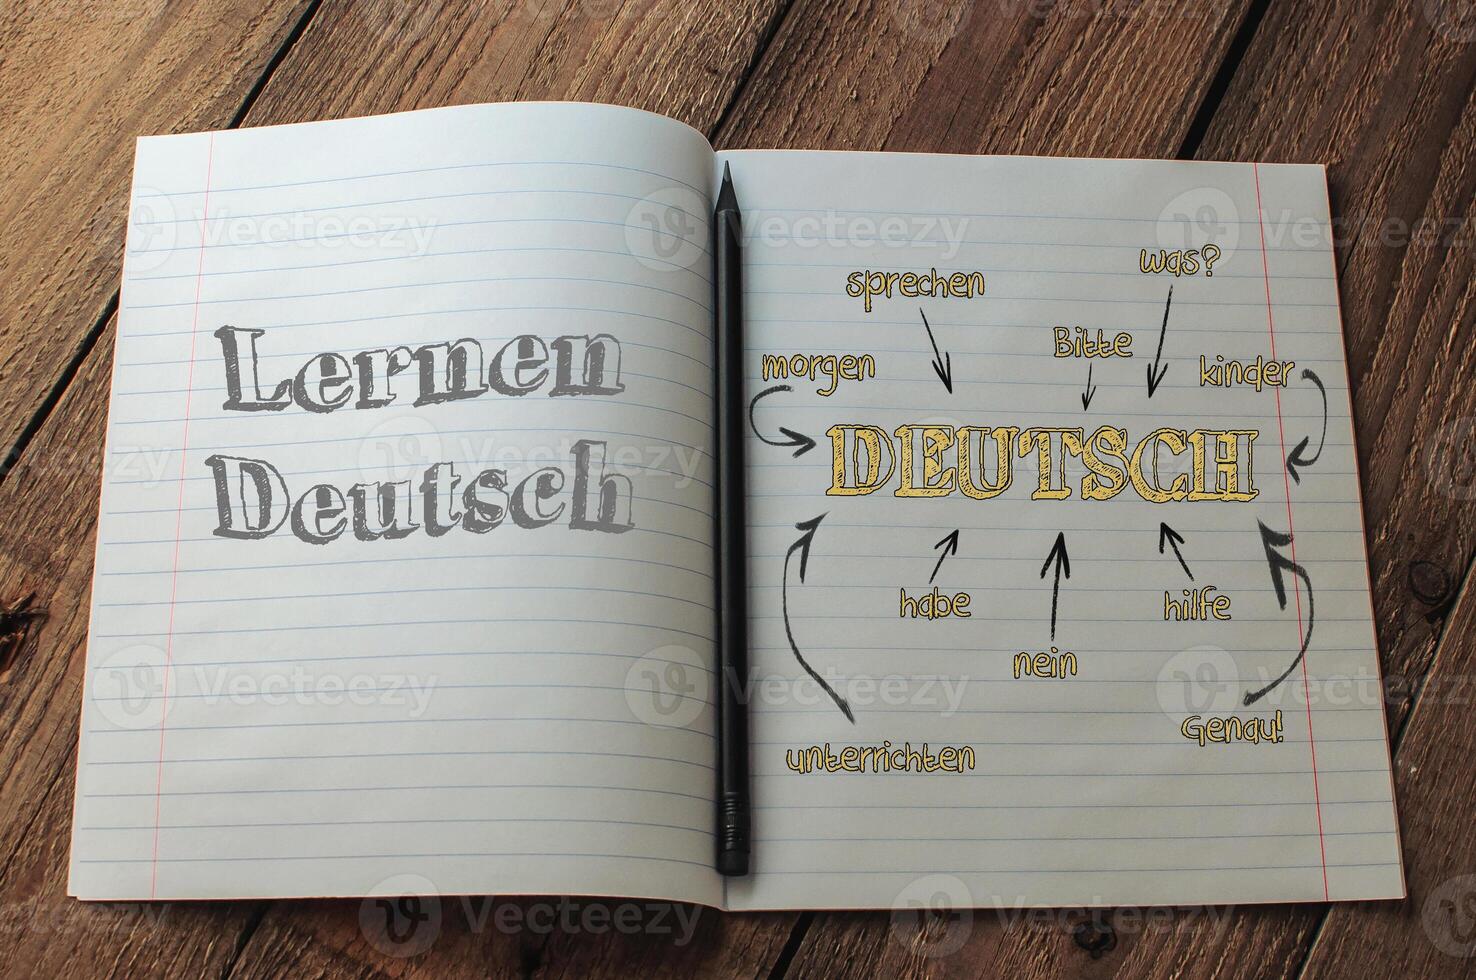 Lernen
Deutsch
was?
sprechen
Bitte
morgen
kinder
DEUTSCH
habe
hilfe
nein
Genau!
unterrichten
Vecteezy